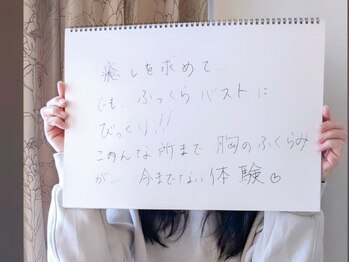 癒しを求めて…
でも、ぶっくらバストに
びっくり!!
こんな所まで 胸のふくらみ
が… 今までない体験♡